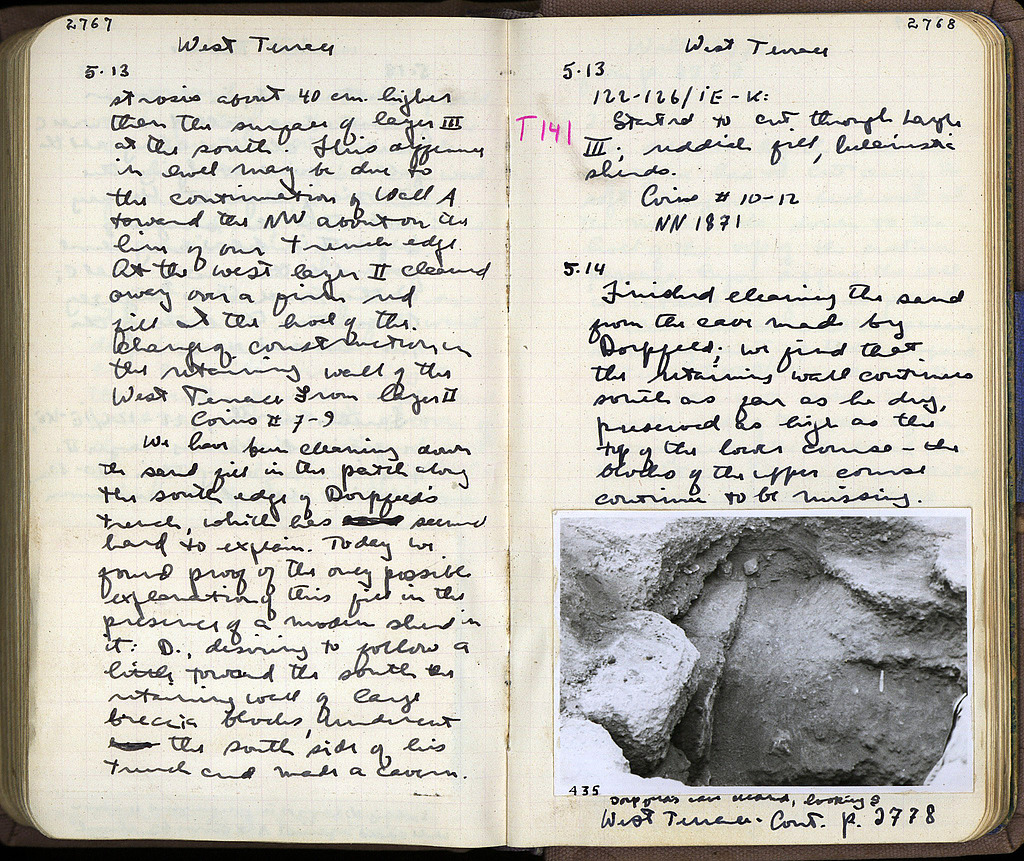 2767
West Terrace
5.13
strosis about 40 cm. higher
than the surface of layer III
at the south. This difference
in level may be due to
the continuation of Wall A
toward the NW about on the
line of our trench edge.
At the west layer II cleaned
away over a firm red
fill at the level of the
change of construction in
the retaining wall of the
West Terrace From layer II
Coins # 7-9
We have been cleaning down
the sand fill in the patch along
the south edge of Dörpfeld's
trench, which has seemed
hard to explain. Today we
found proof of the only possible
explanation of this fill in the
presence of a modern sherd in
it: D., desiring to follow a
little toward the south the
retaining wall of large
breccia blocks, undercut
the south side of his
trench and made a cavern.
2768
West Terrace
5.13
122-126/IE-K:
T 141
Started to cut through Layer
III; reddish fill, hellenistic
sherds.
Coins # 10-12
NN 1871
5.14
Finished cleaning the sand
from the cave made by
Dörpfeld; we find that
the retaining wall continues
south as far as he dug,
preserved as high as the
top of the lower course - the
blocks of the upper course
continue to be missing.
435
Dörpfeld's cave cleaned, looking S
West Terrace - Cont. p. 2778